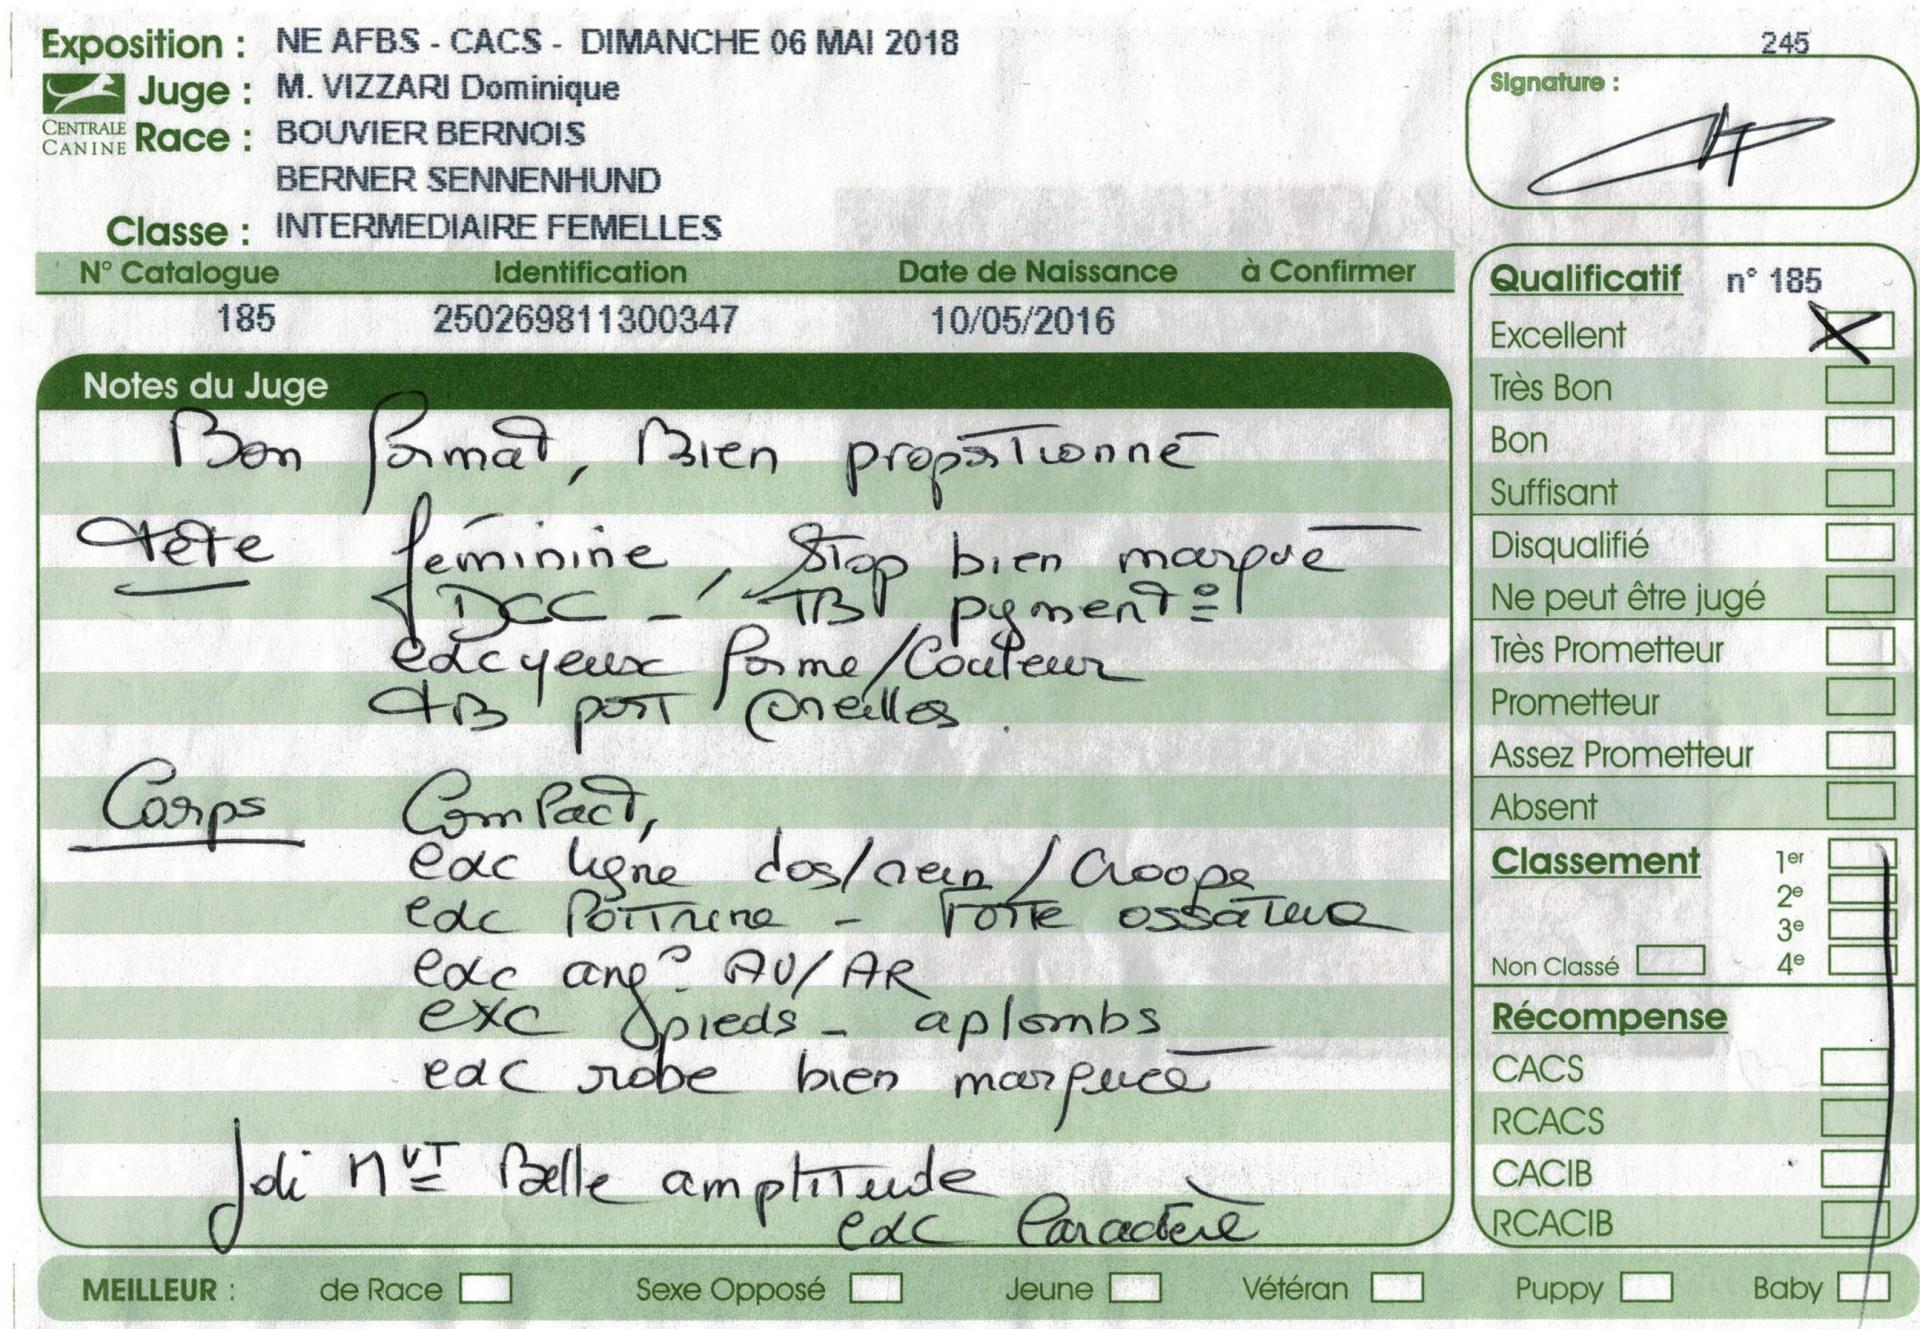 Exposition : NE AFBS - CACS - DIMANCHE 06 MAI 2018
245
CENTRALE CANINE
Juge : M. VIZZARI Dominique
Signature :
Race : BOUVIER BERNOIS
BERNER SENNENHUND
Classe : INTERMEDIAIRE FEMELLES
N° Catalogue Identification Date de Naissance à Confirmer
185 250269811300347 10/05/2016
Notes du Juge
Bon format, Bien proportionné
Tête féminine, Stop bien marqué
DCC - TB pygment°
exc yeux forme/Couleur
TB port oreilles.
Corps Compact,
exc ligne dos/rein/Croope
exc Poitrine - Forte ossature
exc ang° AV/AR
exc pieds - aplombs
exc robe bien marquée
Joli mvt Belle amplitude
exc Caractère
Qualificatif n° 185
Excellent X
Très Bon
Bon
Suffisant
Disqualifié
Ne peut être jugé
Très Prometteur
Prometteur
Assez Prometteur
Absent
Classement 1er
2e
3e
Non Classé 4e
Récompense
CACS
RCACS
CACIB
RCACIB
MEILLEUR : de Race Sexe Opposé Jeune Vétéran Puppy Baby